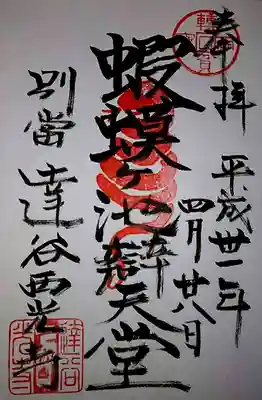 奉拝
平成卅一年
四月廿八日
蝦蟆ヶ池辯天堂
別當 達谷西光寺